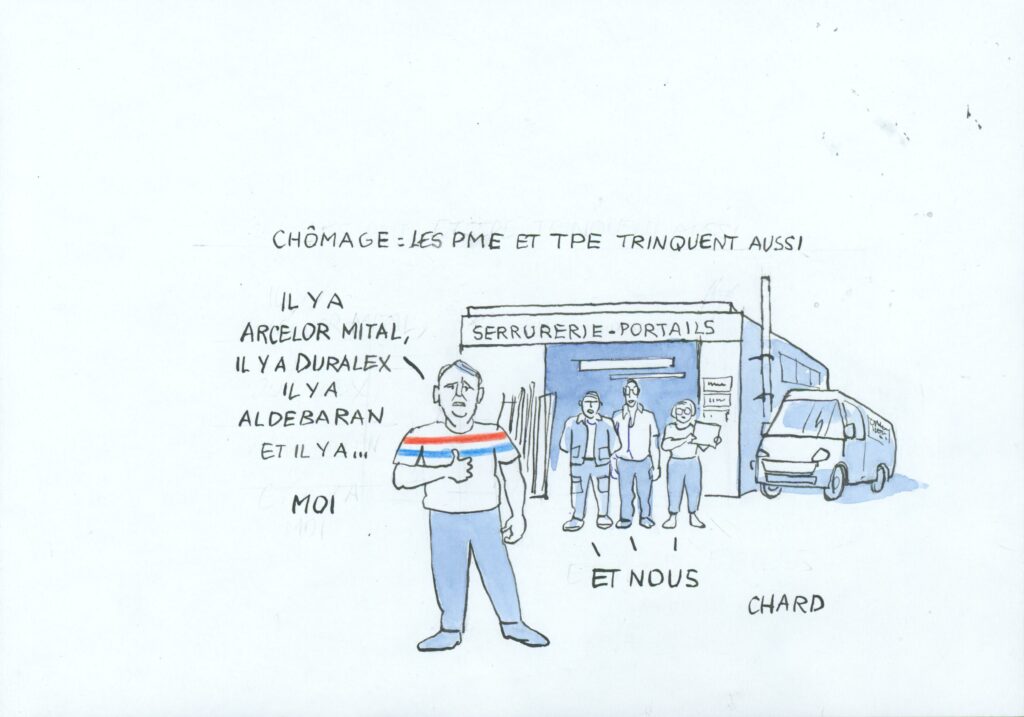 CHÔMAGE : LES PME ET TPE TRINQUENT AUSSI
IL Y A
ARCELOR MITAL,
IL Y A DURALEX
IL Y A
ALDEBARAN
ET IL Y A...
MOI
SERRURERIE - PORTAILS
ET NOUS
CHARD